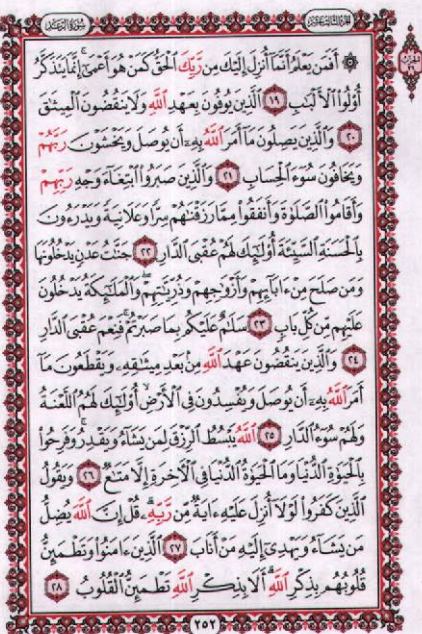 سُورَةُ الرَّعْدِ
الجزء الثالث عشر
۞ أَفَمَن يَعْلَمُ أَنَّمَآ أُنزِلَ إِلَيْكَ مِن رَّبِّكَ ٱلْحَقُّ كَمَنْ هُوَ أَعْمَىٰٓ إِنَّمَا يَتَذَكَّرُ
أُو۟لُوا۟ ٱلْأَلْبَٰبِ ١٩ ٱلَّذِينَ يُوفُونَ بِعَهْدِ ٱللَّهِ وَلَا يَنقُضُونَ ٱلْمِيثَٰقَ
٢٠ وَٱلَّذِينَ يَصِلُونَ مَآ أَمَرَ ٱللَّهُ بِهِۦٓ أَن يُوصَلَ وَيَخْشَوْنَ رَبَّهُمْ
وَيَخَافُونَ سُوٓءَ ٱلْحِسَابِ ٢١ وَٱلَّذِينَ صَبَرُوا۟ ٱبْتِغَآءَ وَجْهِ رَبِّهِمْ
وَأَقَامُوا۟ ٱلصَّلَوٰةَ وَأَنفَقُوا۟ مِمَّا رَزَقْنَٰهُمْ سِرًّا وَعَلَانِيَةً وَيَدْرَءُونَ
بِٱلْحَسَنَةِ ٱلسَّيِّئَةَ أُو۟لَٰٓئِكَ لَهُمْ عُقْبَى ٱلدَّارِ ٢٢ جَنَّٰتُ عَدْنٍ يَدْخُلُونَهَا
وَمَن صَلَحَ مِنْ ءَابَآئِهِمْ وَأَزْوَٰجِهِمْ وَذُرِّيَّٰتِهِمْ ۖ وَٱلْمَلَٰٓئِكَةُ يَدْخُلُونَ
عَلَيْهِم مِّن كُلِّ بَابٍ ٢٣ سَلَٰمٌ عَلَيْكُم بِمَا صَبَرْتُمْ ۚ فَنِعْمَ عُقْبَى ٱلدَّارِ
٢٤ وَٱلَّذِينَ يَنقُضُونَ عَهْدَ ٱللَّهِ مِنۢ بَعْدِ مِيثَٰقِهِۦ وَيَقْطَعُونَ مَآ
أَمَرَ ٱللَّهُ بِهِۦٓ أَن يُوصَلَ وَيُفْسِدُونَ فِى ٱلْأَرْضِ ۙ أُو۟لَٰٓئِكَ لَهُمُ ٱللَّعْنَةُ
وَلَهُمْ سُوٓءُ ٱلدَّارِ ٢٥ ٱللَّهُ يَبْسُطُ ٱلرِّزْقَ لِمَن يَشَآءُ وَيَقْدِرُ ۚ وَفَرِحُوا۟
بِٱلْحَيَوٰةِ ٱلدُّنْيَا وَمَا ٱلْحَيَوٰةُ ٱلدُّنْيَا فِى ٱلْءَاخِرَةِ إِلَّا مَتَٰعٌ ٢٦ وَيَقُولُ
ٱلَّذِينَ كَفَرُوا۟ لَوْلَآ أُنزِلَ عَلَيْهِ ءَايَةٌ مِّن رَّبِّهِۦ ۗ قُلْ إِنَّ ٱللَّهَ يُضِلُّ
مَن يَشَآءُ وَيَهْدِىٓ إِلَيْهِ مَنْ أَنَابَ ٢٧ ٱلَّذِينَ ءَامَنُوا۟ وَتَطْمَئِنُّ
قُلُوبُهُم بِذِكْرِ ٱللَّهِ ۗ أَلَا بِذِكْرِ ٱللَّهِ تَطْمَئِنُّ ٱلْقُلُوبُ ٢٨
٢٥٢